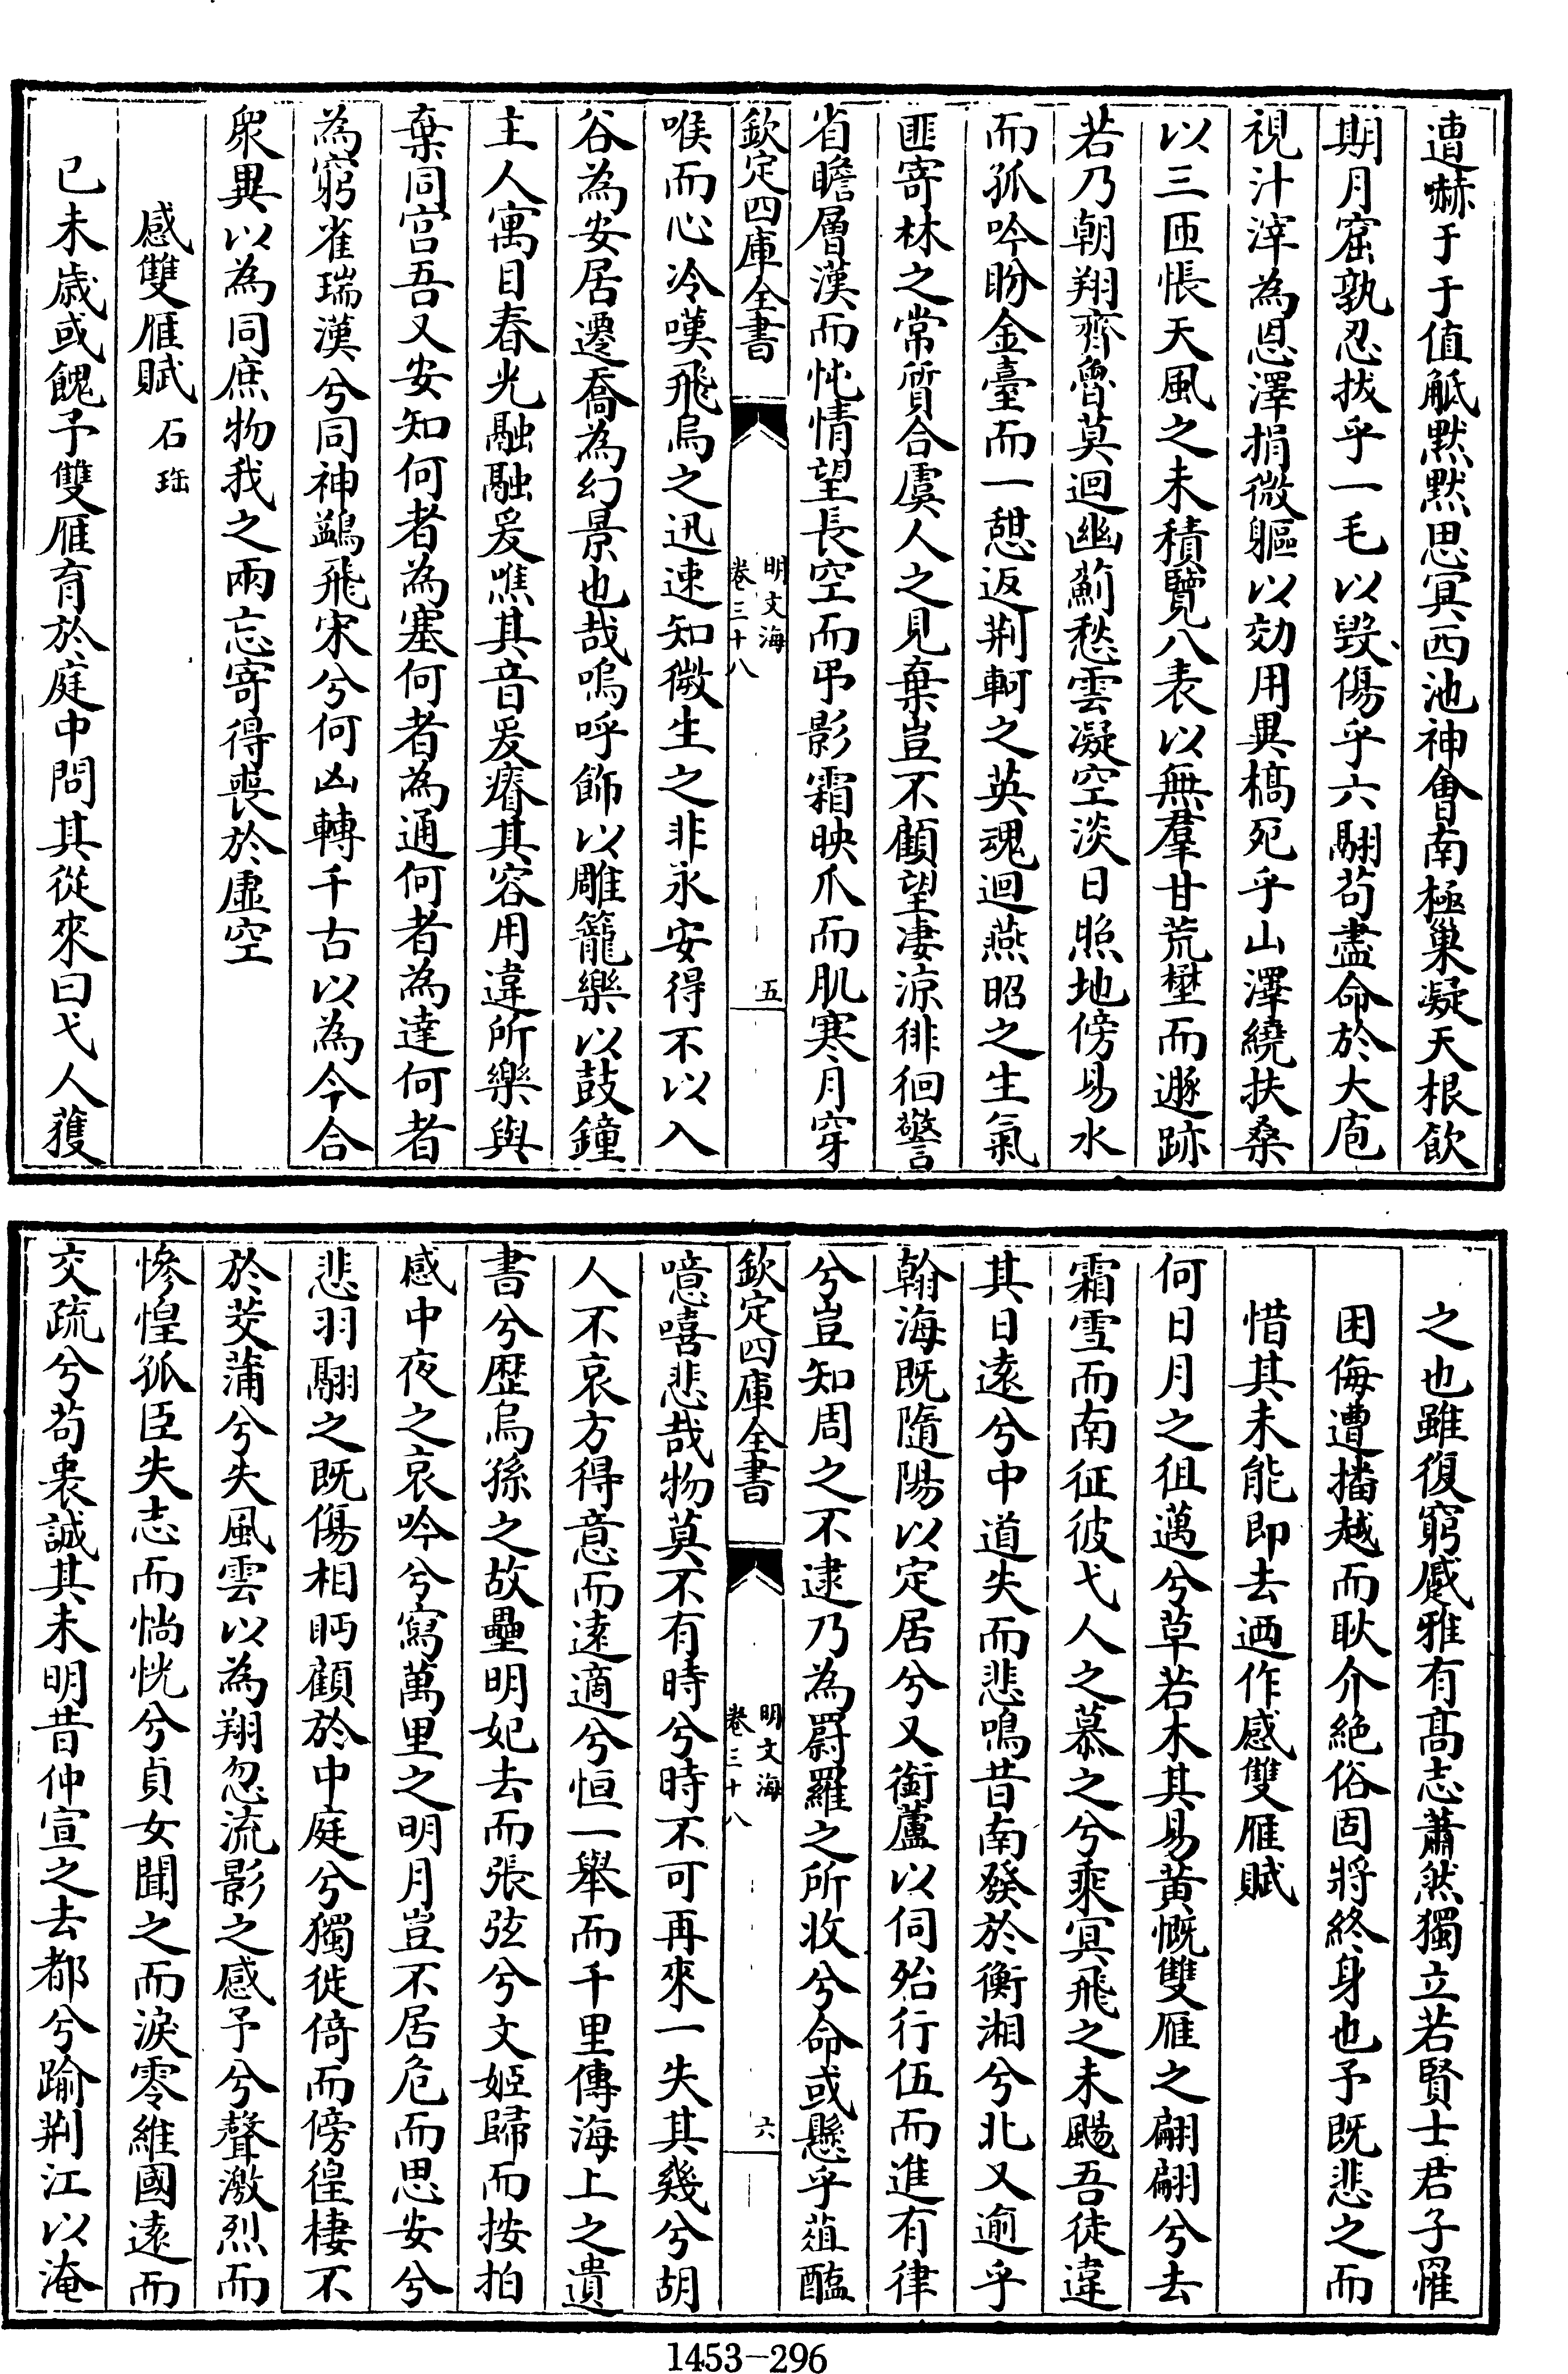 遭嚇于于值觝默默思冥西池神會南極巢凝天根飲
期月窟孰忍拔乎一毛以毀傷乎六翮苟盡命於大庖
視汁滓為恩澤捐微軀以効用異槁死乎山澤繞扶桑
以三匝悵天風之未積覽八表以無羣甘荒壄而遯跡
若乃朝翔齊魯莫迴幽薊愁雲凝空淡日照地傍易水
而孤吟盼金臺而一憇返荆軻之英魂迴燕昭之生氣
匪寄林之常質合虞人之見棄豈不顧望凄涼徘徊警
省瞻層漢而忳情望長空而弔影霜映爪而肌寒月穿
欽定四庫全書
明文海
卷三十八
五
喉而心冷嘆飛烏之迅速知微生之非永安得不以入
谷為安居遷喬為幻景也哉嗚呼飾以雕籠樂以鼓鐘
主人寓目春光融融爰噍其音爰瘠其容用違所樂與
棄同宫吾又安知何者為塞何者為通何者為達何者
為窮雀瑞漢兮同神鷁飛宋兮何凶轉千古以為今合
衆異以為同庶物我之兩忘寄得喪於虛空
感雙雁賦 石珤
已未歲或餽予雙雁育於庭中問其從來曰弋人獲
之也雖復窮蹙雅有髙志蕭然獨立若賢士君子罹
困侮遭播越而耿介絶俗固將終身也予既悲之而
惜其未能即去迺作感雙雁賦
何日月之徂邁兮草若木其易黄慨雙雁之翩翩兮去
霜雪而南征彼弋人之慕之兮乘冥飛之未颺吾徒違
其日遠兮中道失而悲鳴昔南發於衡湘兮北又逾乎
翰海既隨陽以定居兮又銜蘆以伺殆行伍而進有律
兮豈知周之不逮乃為罻羅之所收兮命或懸乎葅醢
欽定四庫全書
明文海
卷三十八
六
噫嘻悲哉物莫不有時兮時不可再來一失其幾兮胡
人不哀方得意而遠適兮恒一舉而千里傳海上之遺
書兮歴烏孫之故壘明妃去而張弦兮文姬歸而按拍
感中夜之哀吟兮寫萬里之明月豈不居危而思安兮
悲羽翮之既傷相眄顧於中庭兮獨徙倚而傍徨棲不
於茭蒲兮失風雲以為翔忽流影之感予兮聲激烈而
慘惶孤臣失志而惝恍兮貞女聞之而淚零維國遠而
交疏兮苟衷誠其未明昔仲宣之去都兮踰荆江以淹
1453-296